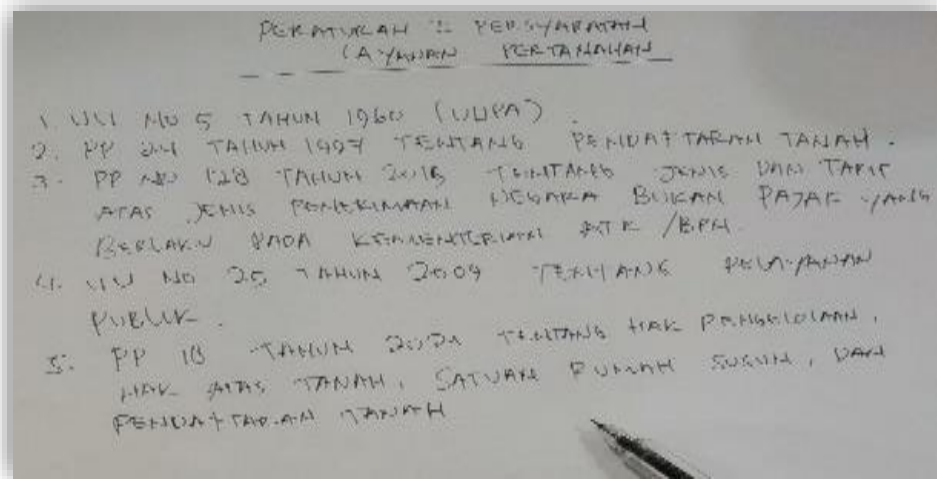 PERATURAN : PERSYARATAN
LAYANAN PERTANAHAN
1. UU NO 5 TAHUN 1960 (UUPA).
2. PP 24 TAHUN 1997 TENTANG PENDAFTARAN TANAH.
3. PP NO 128 TAHUN 2015 TENTANG JENIS DAN TARIF
ATAS JENIS PENERIMAAN NEGARA BUKAN PAJAK YANG
BERLAKU PADA KEMENTERIAN ATR/BPN.
4. UU NO 25 TAHUN 2009 TENTANG PELAYANAN
PUBLIK.
5. PP 18 TAHUN 2021 TENTANG HAK PENGELOLAAN,
HAK ATAS TANAH, SATUAN RUMAH SUSUN, DAN
PENDAFTARAN TANAH